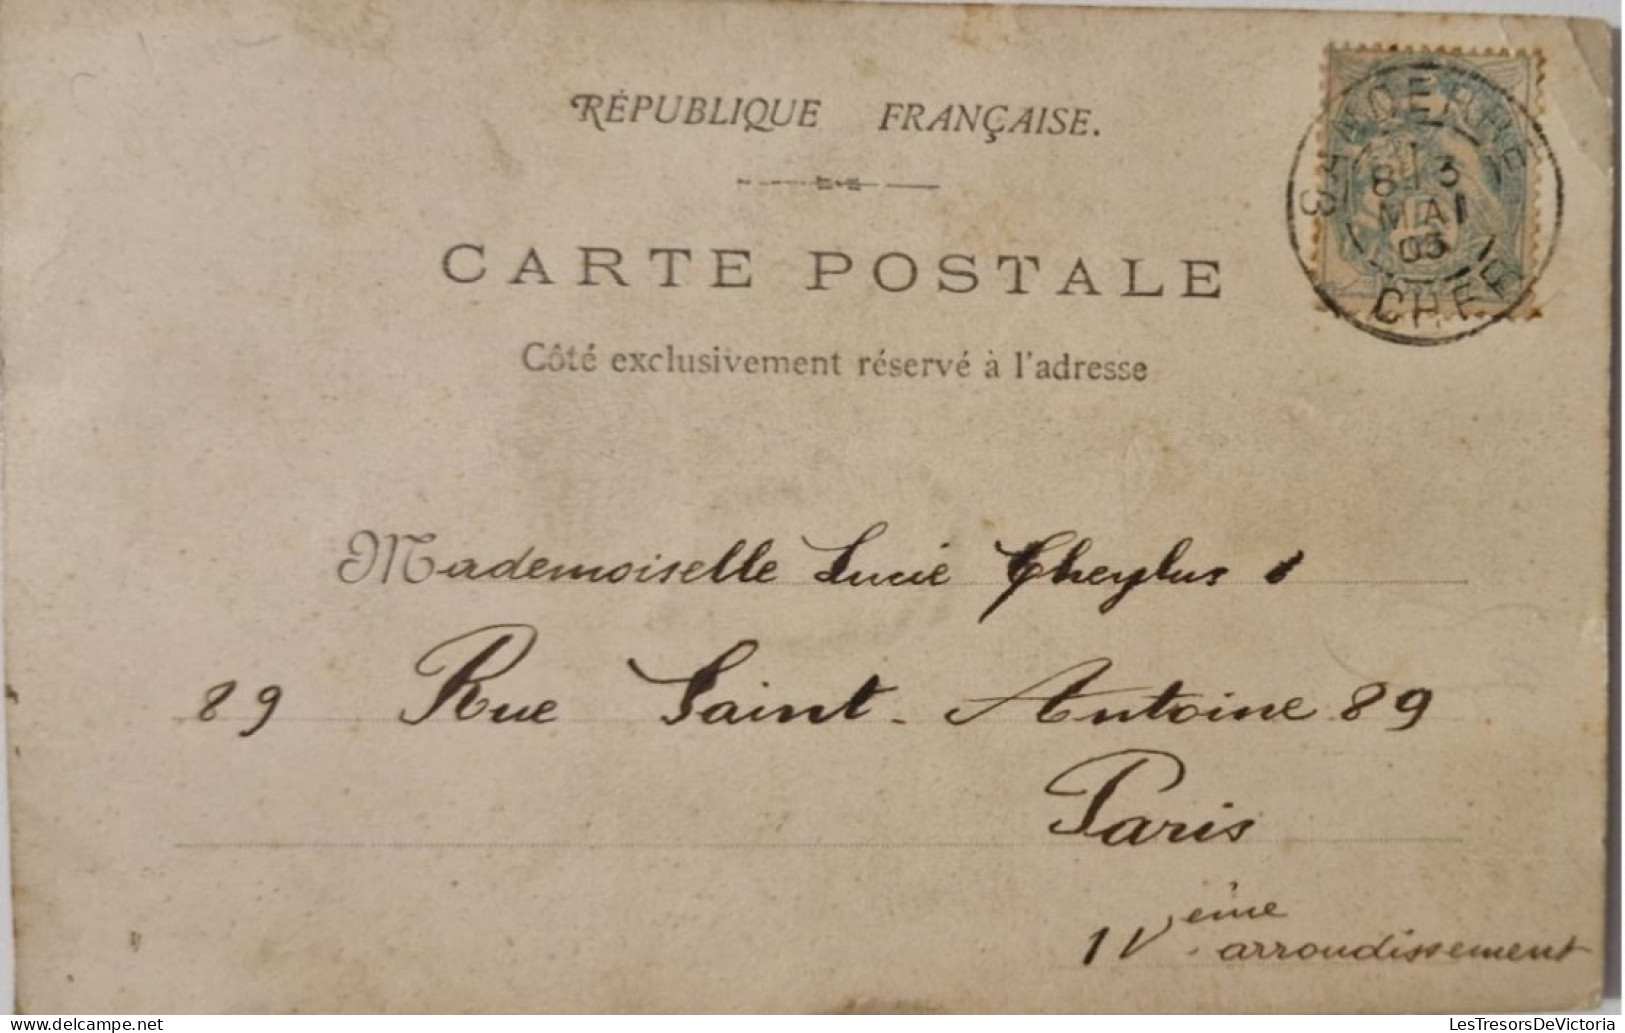 RÉPUBLIQUE FRANÇAISE.
8 13
MAI
03
CHER
CARTE POSTALE
Côté exclusivement réservé à l'adresse
Mademoiselle Lucie Cheylus
89 Rue Saint-Antoine 89
Paris
IVème arrondissement
LesTresorsDeVictoria